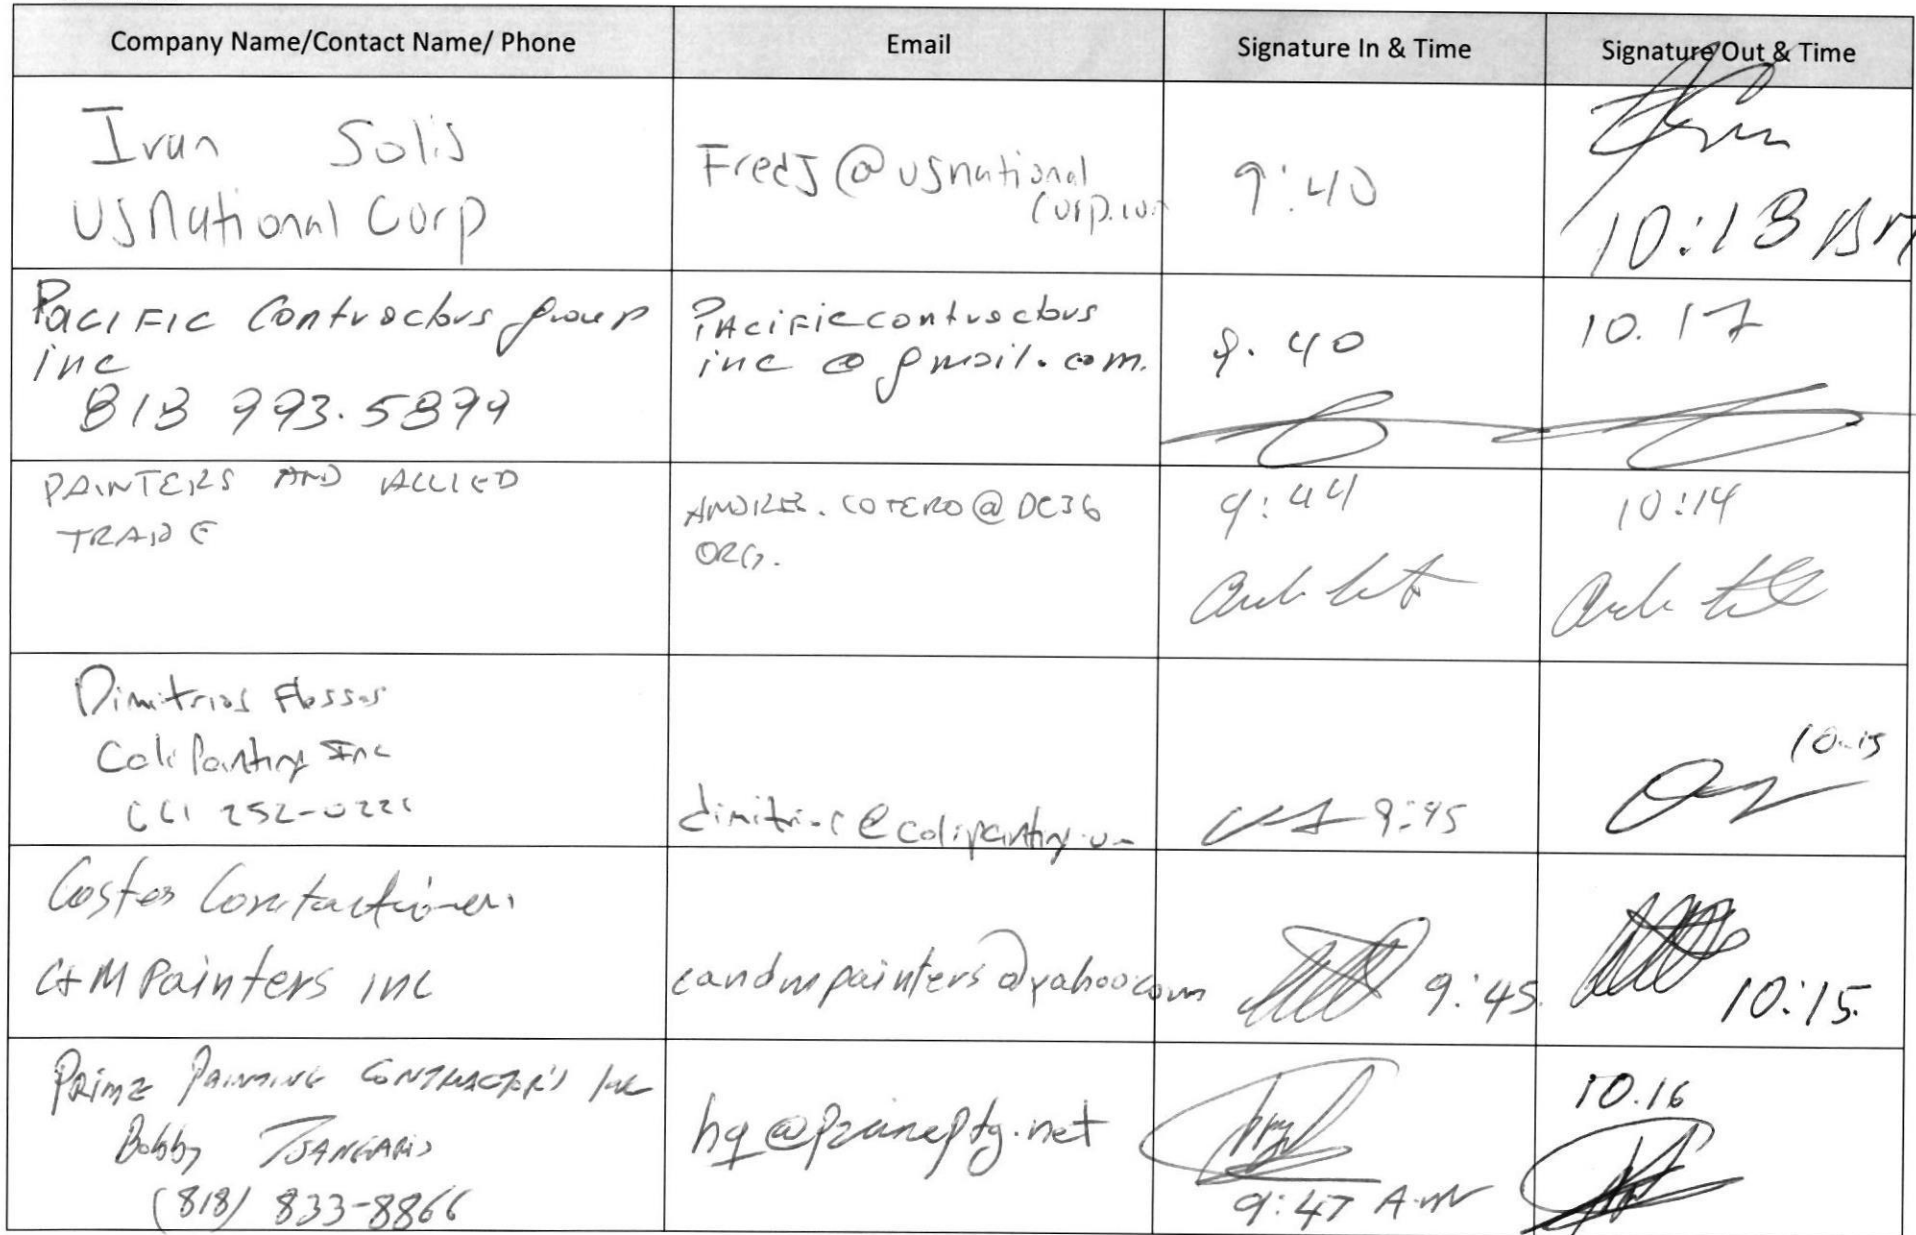 Company Name/Contact Name/ Phone
Email
Signature In & Time
Signature Out & Time
Ivan Solis
US National Corp
FredJ@usnational
corp.com
9:40
10:13
Pacific Contractors group
inc
818 993.5899
Pacificcontractors
inc @ gmail.com.
9.40
10.17
PAINTERS AND ALLIED
TRADE
ANDRES.COTERO@DC36
ORG.
9:44
10:14
Dimitrios
Inc
252-022
9:45
10:15
C&M Painters inc
candmpainters@yahoo.com
9:45
10:15
Prime Painting Contractor's Inc
Bobby Tsangaris
(818) 833-8866
hq@primeptg.net
9:47 A.M
10.16